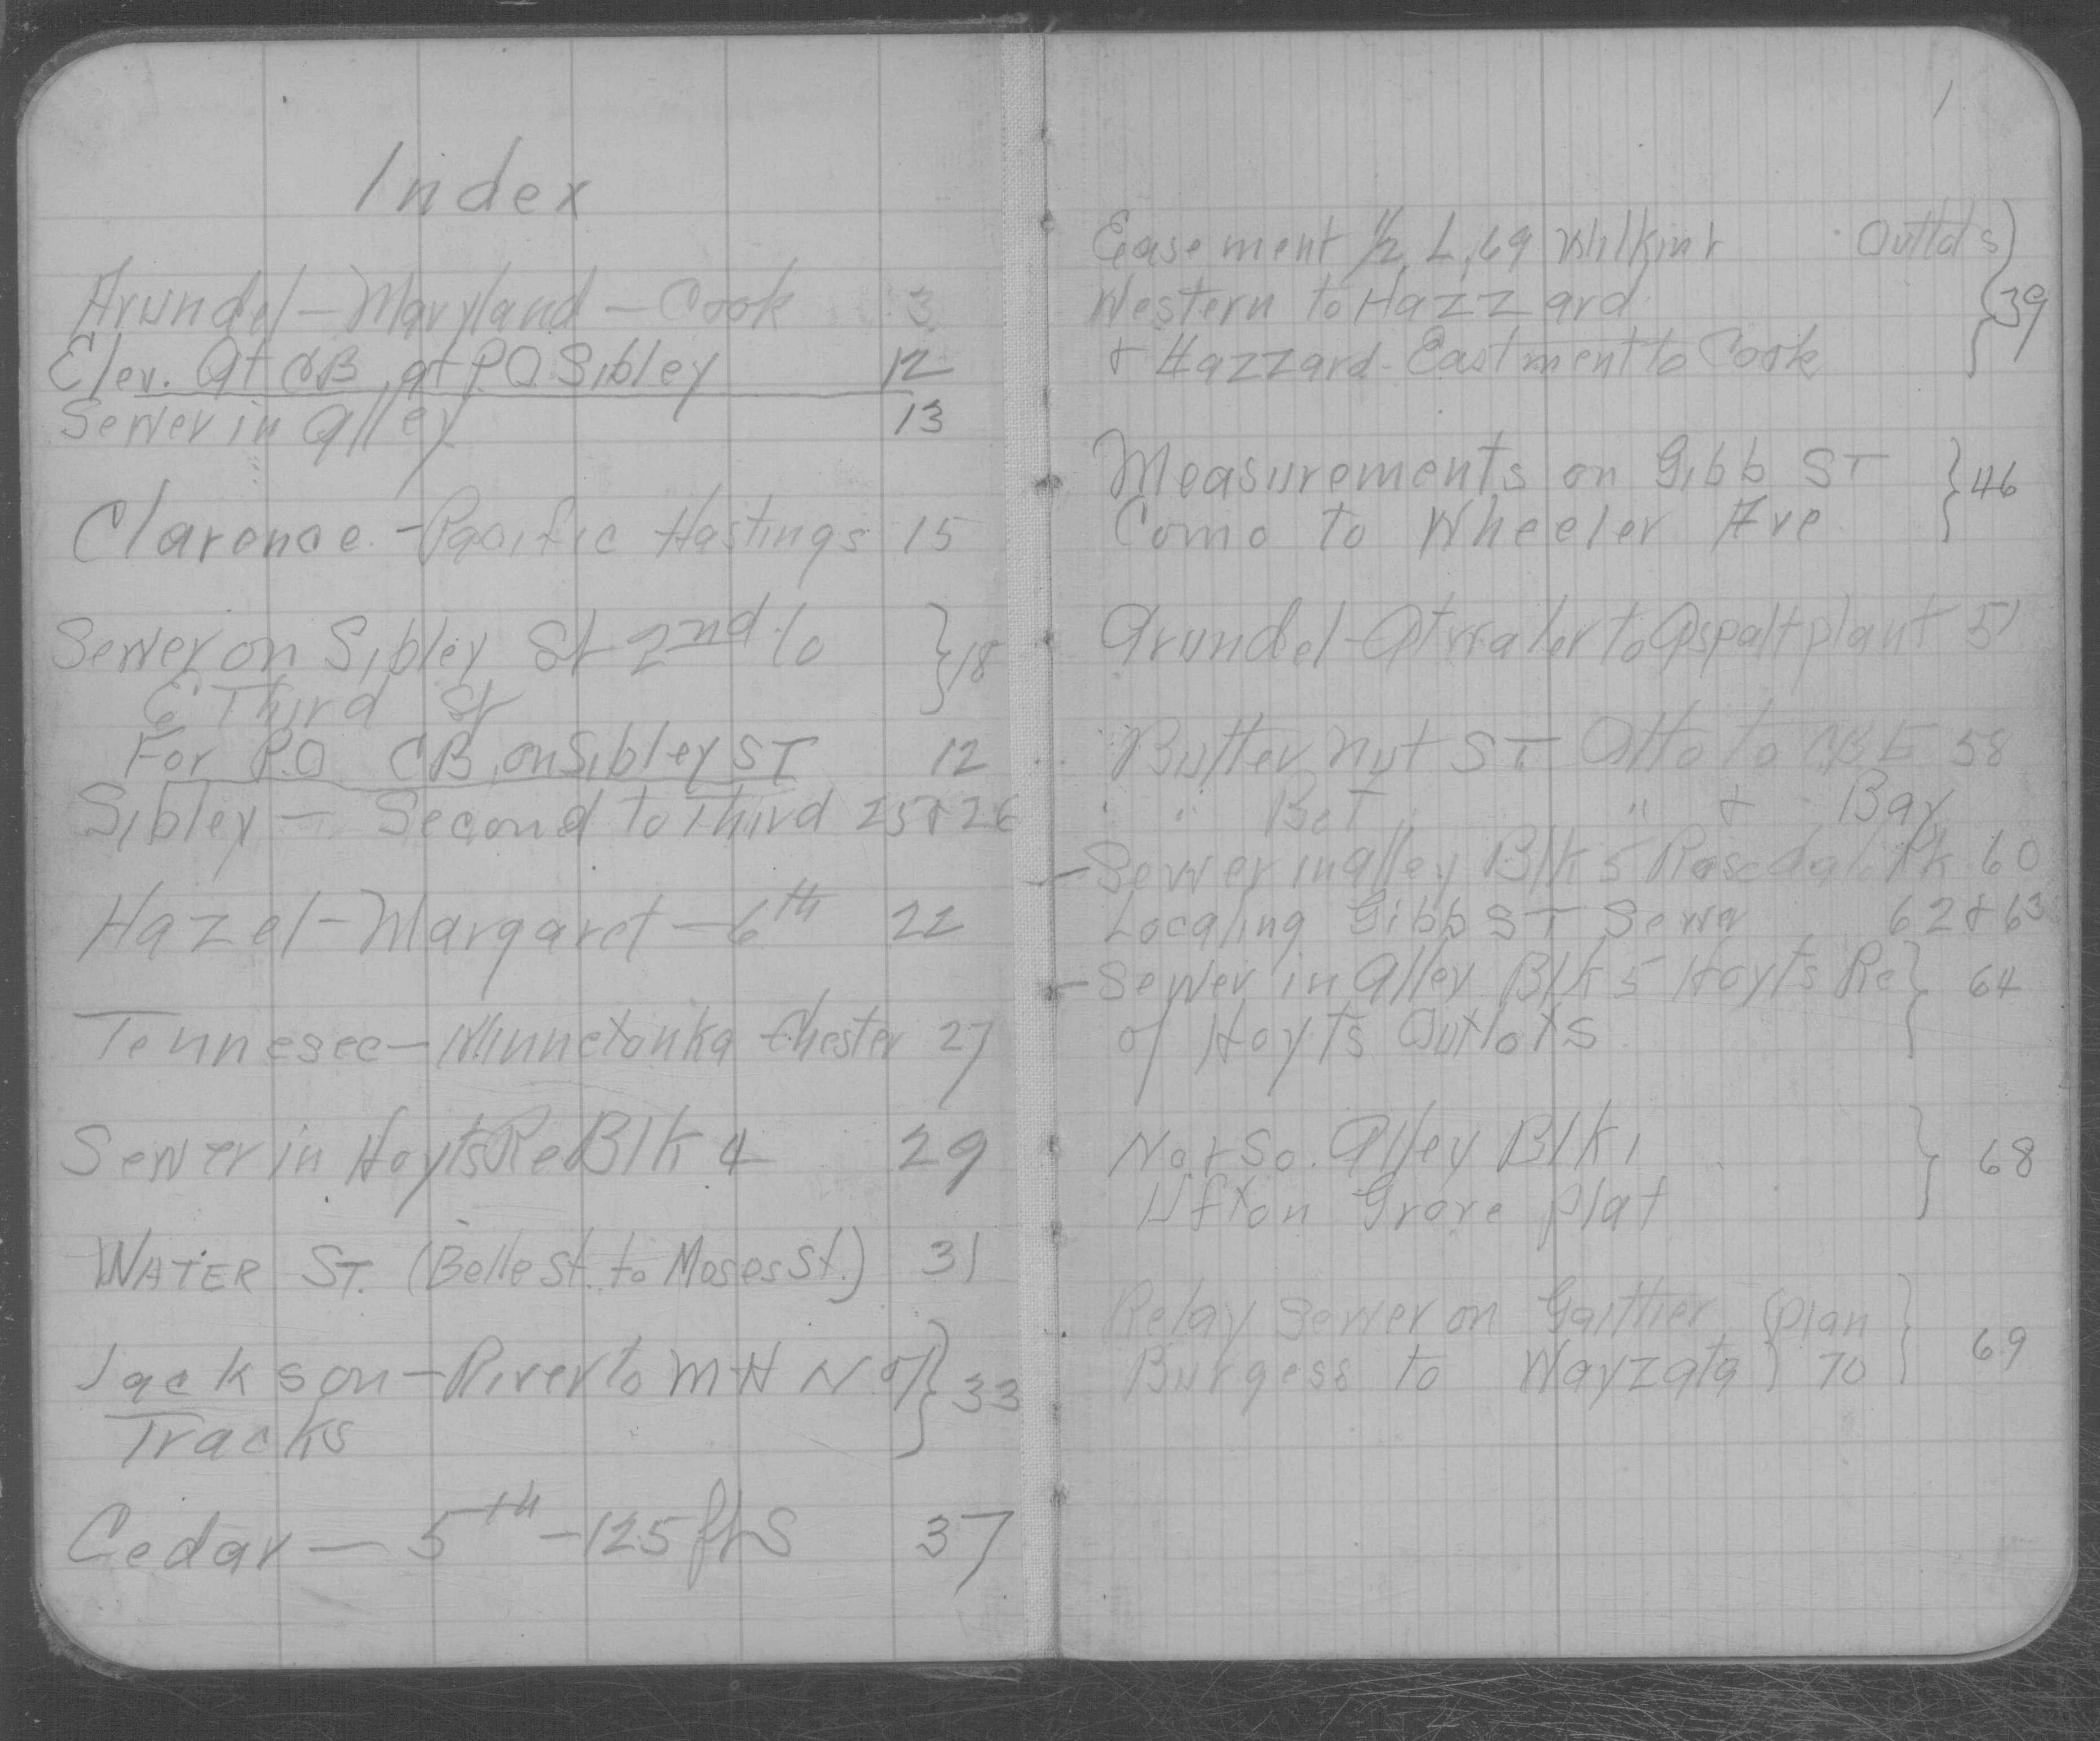 Index
Arundel - Maryland - Cook 3
Elev. at CB at P.O. Sibley 12
Sewer in alley 13
Clarence - Pacific Hastings 15
Sewer on Sibley St 2nd to } 18
E Third St
For P.O. CB on Sibley ST 12
Sibley - Second to Third 25 & 26
Hazel - Margaret - 6th 22
Tennesee - Minnetonka Chester 27
Sewer in Hoyts Re Blk 4 29
WATER ST. (Belle St. to Moses St.) 31
Jackson - River to MH N of } 33
Tracks
Cedar - 5th - 125 ft S 37
1
Easement 1/2 L, 69 Outlots } 39
Western to Hazzard
& Hazzard - Eastment to Cook
Measurements on Gibb ST } 46
Como to Wheeler Ave
Arundel - to Aspalt plant 51
Butter nut ST. Otto to 58
" " Bet " & Bay
- Sewer in alley Blk 5 Rosedale Pk 60
Locating Gibb ST Sewer 62 & 63
- Sewer in Alley Blk 5 Hoyts Re } 64
of Hoyts Outlots
No. & So. Alley Blk 1 } 68
Ufton Grove plat
Relay Sewer on Gaither (plan } 69
Burgess to Wayzata) 70